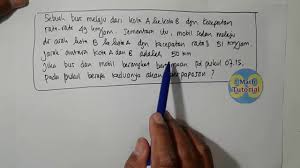 Sebuah bus melaju dari kota A ke kota B dgn kecepatan
rata-rata 49 km/jam. Sementara itu, mobil melaju
dr arah kota B ke kota A dgn kecepatan rata² 51 km/jam
Jarak antara kota A dan B adalah 50 km
Jika bus dan mobil berangkat pd pukul 07.15,
pada pukul berapa keduanya akan berpapasan ?
Math
Tutorial